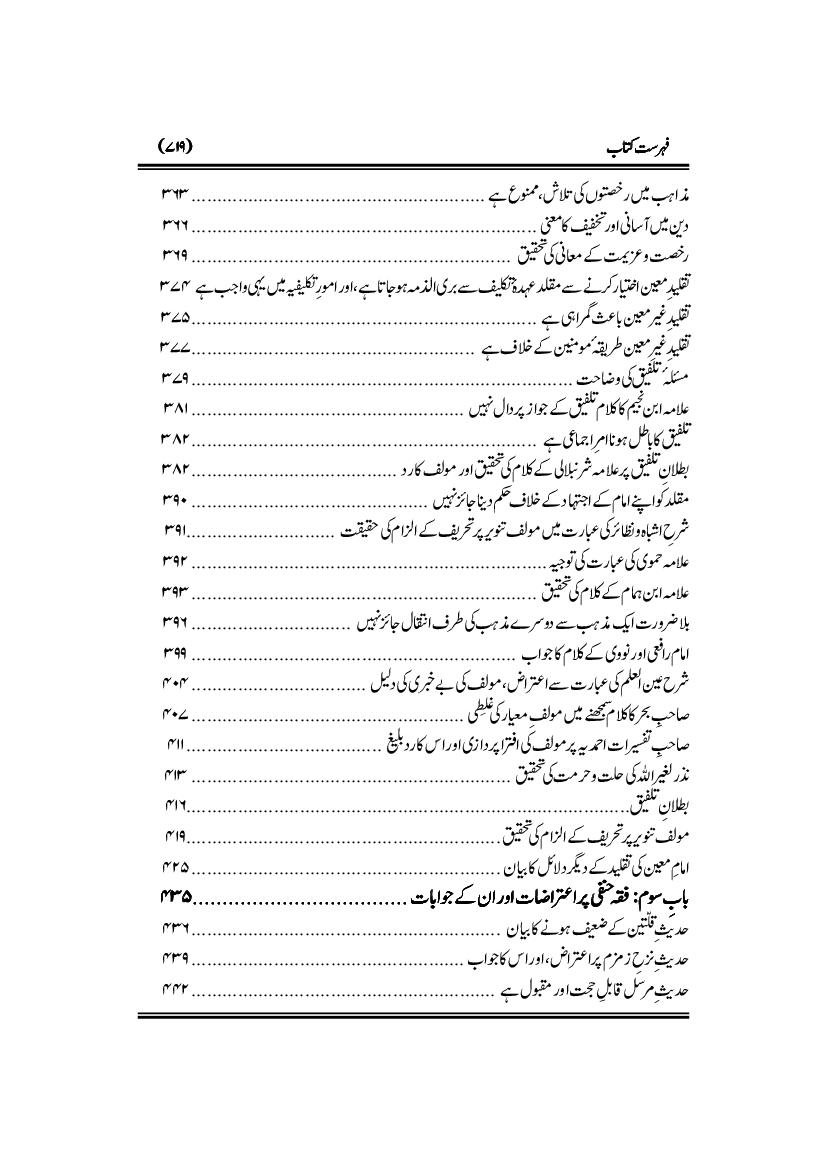 فہرست کتاب (۷۱۹)
مذاہب میں رخصتوں کی تلاش، ممنوع ہے ........ ۳۶۳
دین میں آسانی اور تخفیف کا معنی ........ ۳۶۶
رخصت و عزیمت کے معانی کی تحقیق ........ ۳۶۹
تقلیدِ معین اختیار کرنے سے مقلد عہدۂ تکلیف سے بری الذمہ ہو جاتا ہے، اور امورِ تکلیفیہ میں یہی واجب ہے ۳۷۴
تقلیدِ غیر معین باعث گمراہی ہے ........ ۳۷۵
تقلیدِ غیرِ معین طریقۂ مومنین کے خلاف ہے ........ ۳۷۷
مسئلۂ تلفیق کی وضاحت ........ ۳۷۹
علامہ ابن نجیم کا کلام تلفیق کے جواز پر دال نہیں ........ ۳۸۱
تلفیق کا باطل ہونا امرِ اجماعی ہے ........ ۳۸۲
بطلانِ تلفیق پر علامہ شرنبلالی کے کلام کی تحقیق اور مولف کا رد ........ ۳۸۲
مقلد کو اپنے امام کے اجتہاد کے خلاف حکم دینا جائز نہیں ........ ۳۹۰
شرحِ اشباہ و نظائر کی عبارت میں مولف تنویر پر تحریف کے الزام کی حقیقت ........ ۳۹۱
علامہ حموی کی عبارت کی توجیہ ........ ۳۹۲
علامہ ابن ہمام کے کلام کی تحقیق ........ ۳۹۳
بلا ضرورت ایک مذہب سے دوسرے مذہب کی طرف انتقال جائز نہیں ........ ۳۹۶
امام رافعی اور نووی کے کلام کا جواب ........ ۳۹۹
شرح عین العلم کی عبارت سے اعتراض، مولف کی بے خبری کی دلیل ........ ۴۰۴
صاحبِ بحر کا کلام سمجھنے میں مولفِ معیار کی غلطی ........ ۴۰۷
صاحبِ تفسیرات احمدیہ پر مولف کی افترا پردازی اور اس کا ردِ بلیغ ........ ۴۱۱
نذر لغیر اللہ کی حلت و حرمت کی تحقیق ........ ۴۱۳
بطلانِ تلفیق ........ ۴۱۶
مولف تنویر پر تحریف کے الزام کی تحقیق ........ ۴۱۹
امامِ معین کی تقلید کے دیگر دلائل کا بیان ........ ۴۲۵
بابِ سوم: فقہ حنفی پر اعتراضات اور ان کے جوابات ........ ۴۳۵
حدیثِ قلّتین کے ضعیف ہونے کا بیان ........ ۴۳۶
حدیثِ نزحِ زمزم پر اعتراض، اور اس کا جواب ........ ۴۳۹
حدیثِ مرسل قابلِ حجت اور مقبول ہے ........ ۴۴۲